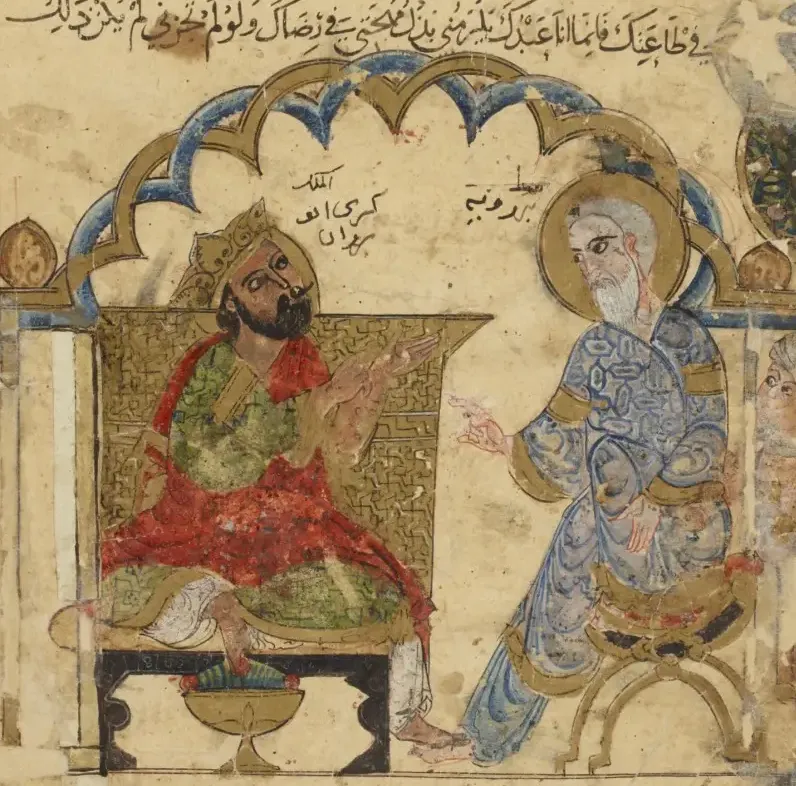 في طاعتك فانما انا عبدك يلزمني بذل مهجتي في رضاك ولو لم تجزني لم يكن ذلك
الملك
كسرى انو
شروان
برزويه